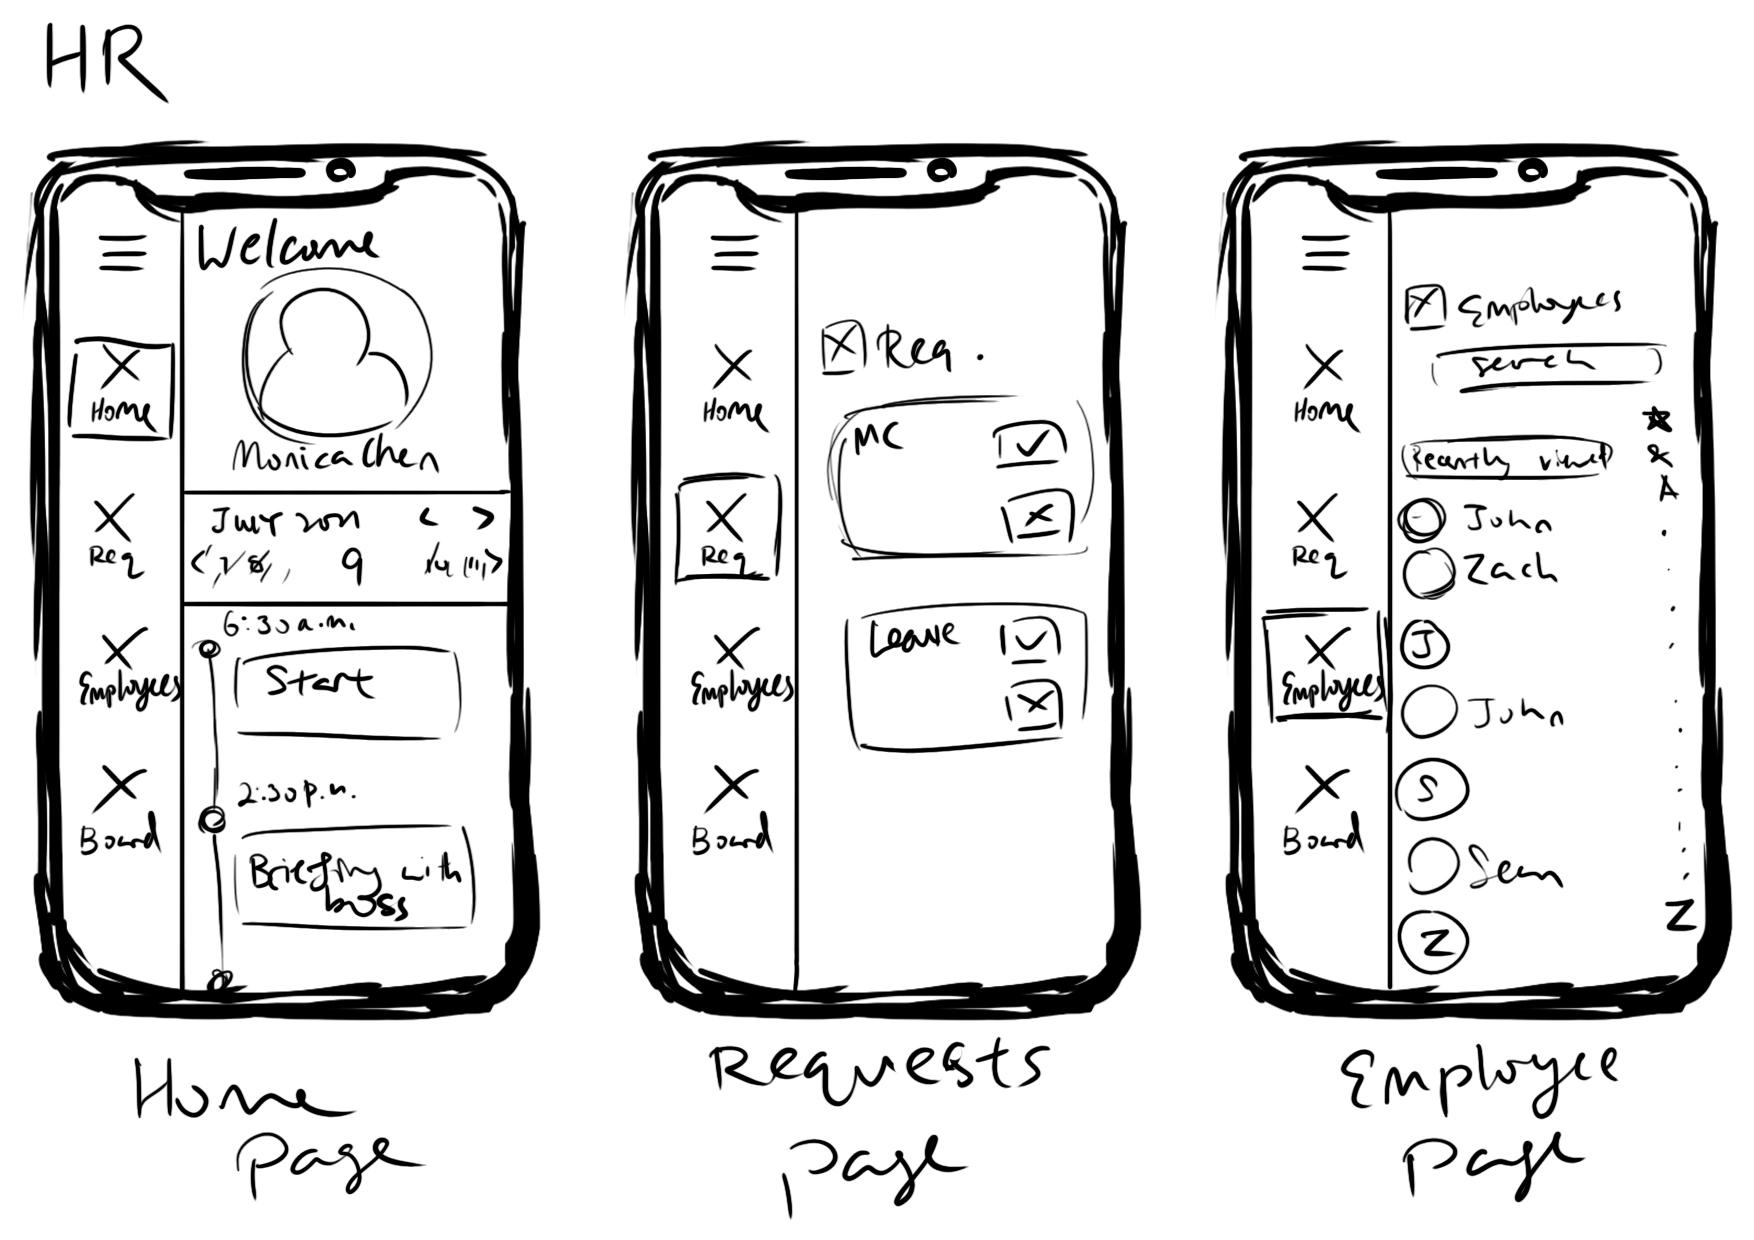 HR
Welcome
Monica Chen
Home
Req
Employees
Board
July 2021
< >
< 7/8/, 9 >
6:30 a.m.
Start
2:30 p.m.
Briefing with
boss
Home
Page
Home
Req
Employees
Board
Req.
MC
Leave
Requests
Page
Home
Req
Employees
Board
Employees
search
Recently viewed
&
A
John
Zach
J
John
S
Sean
Z
Z
Employee
Page